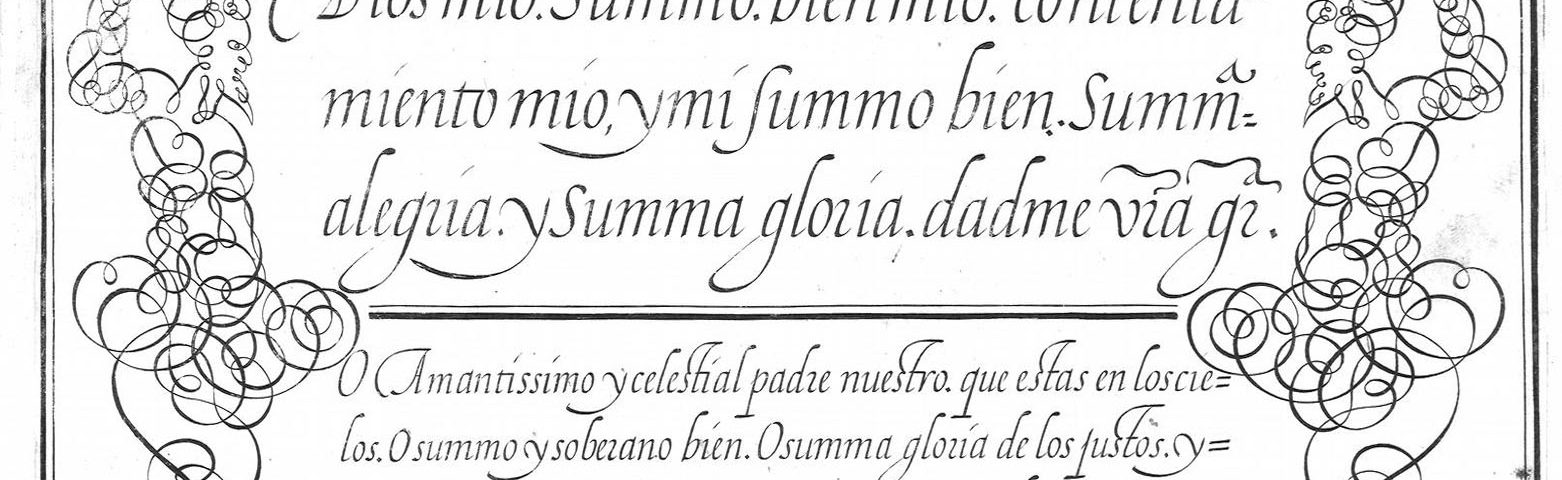 Dios mio. Summo. bien mio. contenta
miento mio, y mi summo bien. Summã=
alegria. y Summa gloria. dadme vr̃a gr̃.
O Amantissimo y celestial padre nuestro. que estas en los cie=
los. O summo y soberano bien. O summa gloria de los justos. y=